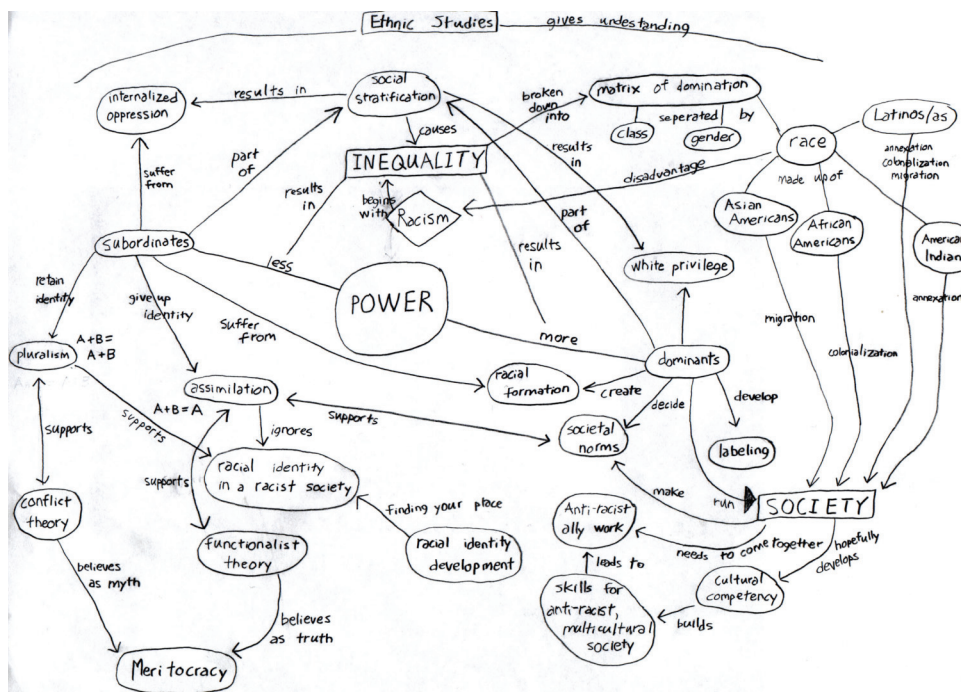 Ethnic Studies
gives undestanding
internalized
oppression
results in
social
stratification
broken
down
into
matrix of domination
class
seperated by
gender
Latinos/as
race
annexation
colonialization
migration
causes
INEQUALITY
part
of
results
in
suffer
from
results
in
begins
with
Racism
disadvantage
made up of
Asian
Americans
African
Americans
American
Indian
part
of
subordinates
less
POWER
results
in
white privilege
retain
identity
give up
identity
suffer
from
more
migration
colonialization
annexation
pluralism
A+B=
A+B
assimilation
A+B=A
racial
formation
create
dominants
decide
develop
supports
supports
ignores
supports
societal
norms
labeling
racial identity
in a racist society
supports
make
run
SOCIETY
conflict
theory
functionalist
theory
finding your place
racial identity
development
Anti-racist
ally work
needs to come together
hopefully
develops
leads to
cultural
competency
believes
as myth
believes
as truth
skills for
anti-racist,
multicultural
society
builds
Meritocracy